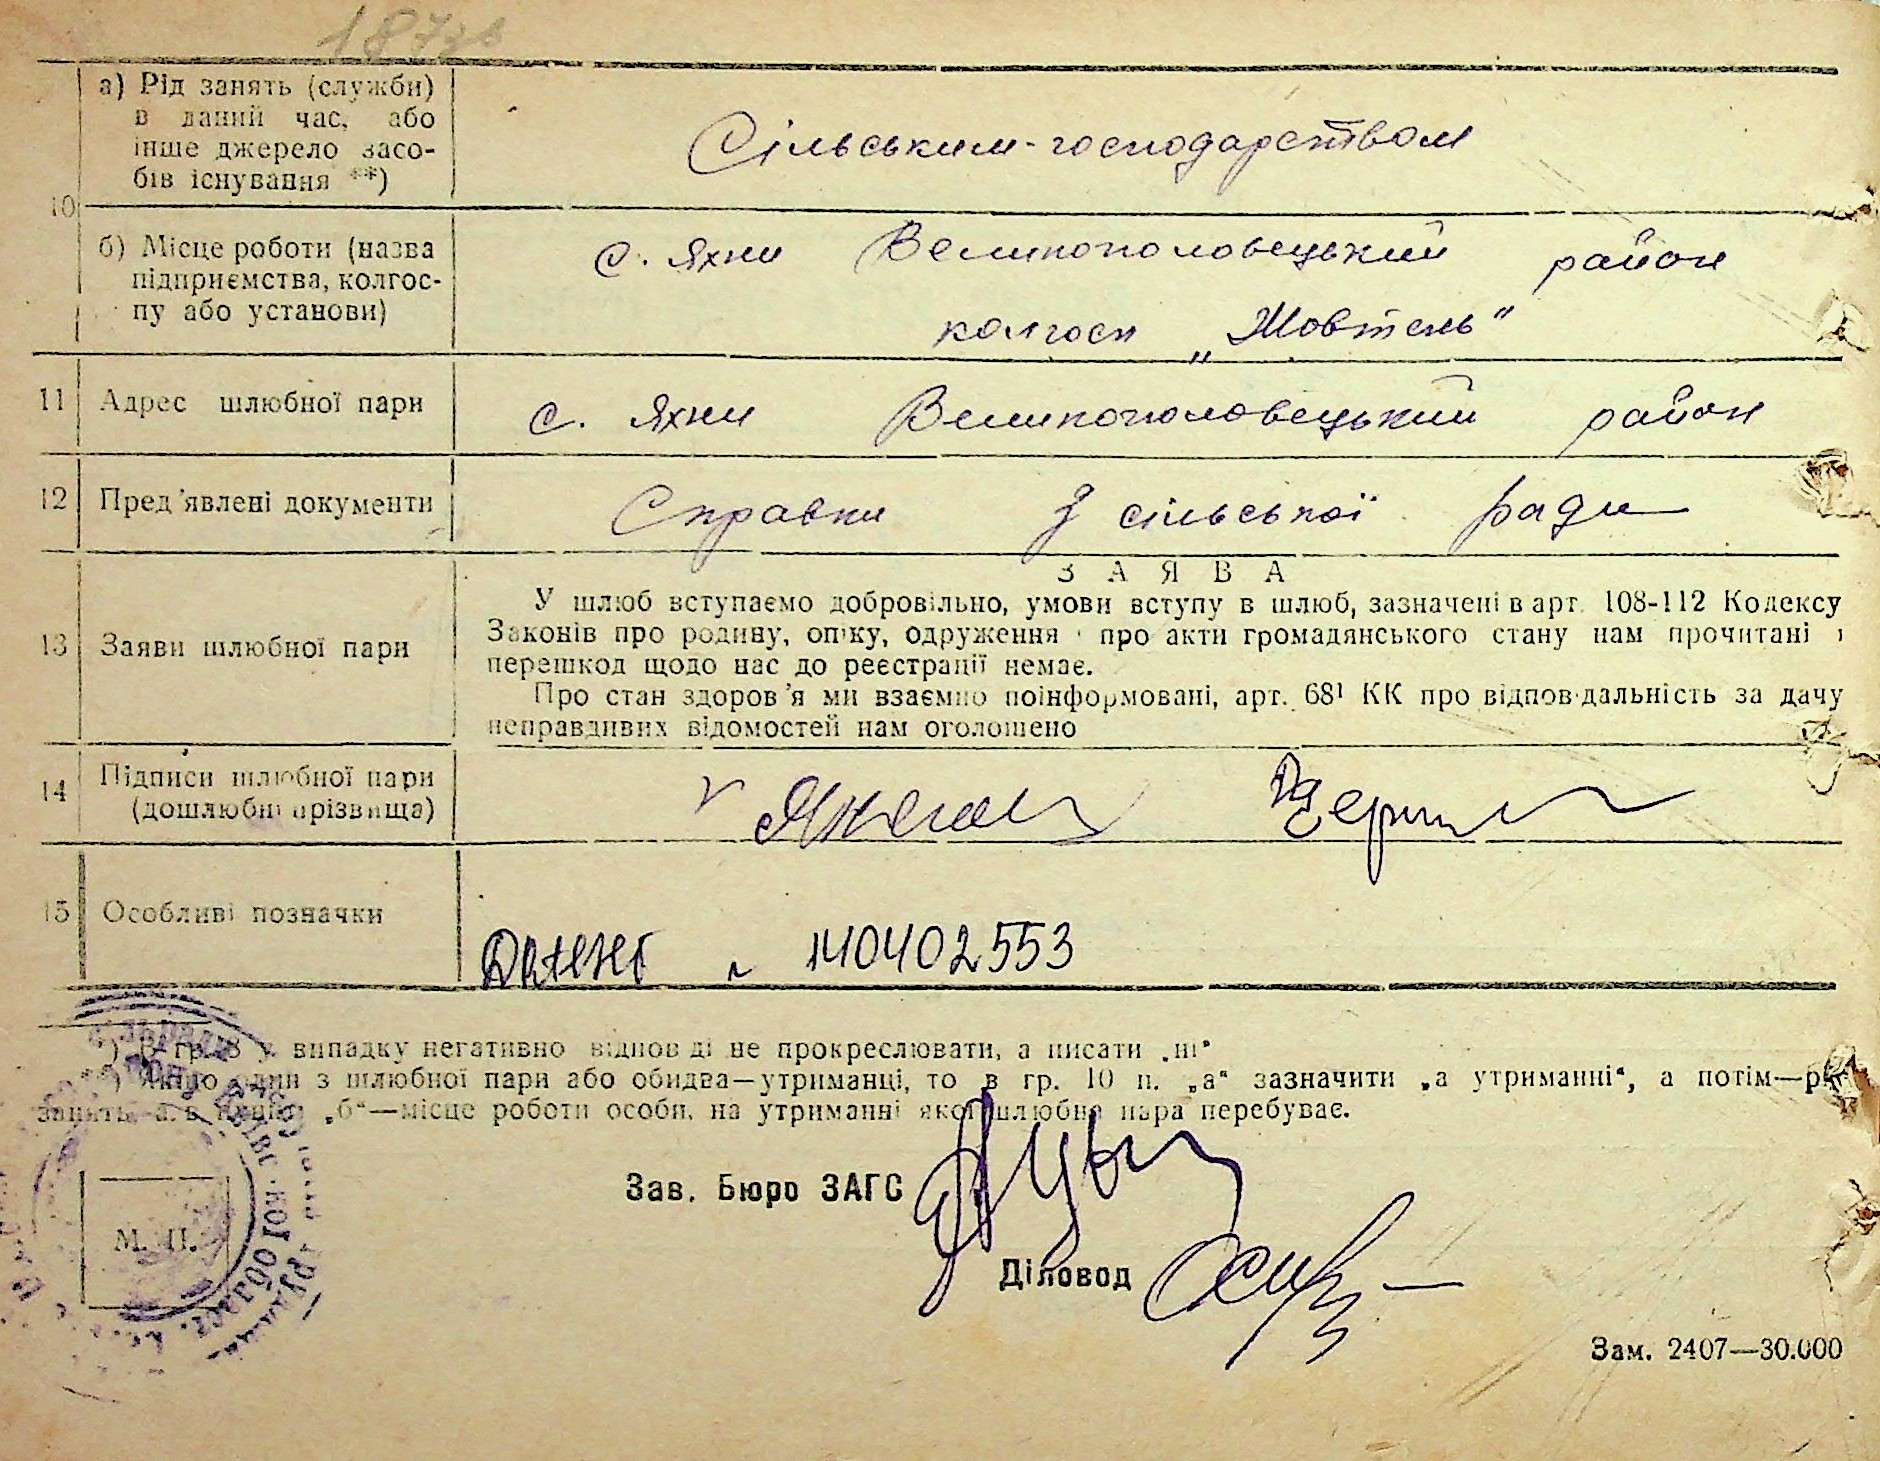 187зв
а) Рід занять (служби)
в даний час, або
інше джерело засо-
бів існування **)
Сільським-господарством
10
б) Місце роботи (назва
підприємства, колгос-
пу або установи)
с. Яхни Великополовецький район
колгосп „Жовтень"
11 Адрес шлюбної пари
с. Яхни Великополовецький район
12 Пред'явлені документи
Справки з сільської ради
13 Заяви шлюбної пари
ЗАЯВА
У шлюб вступаємо добровільно, умови вступу в шлюб, зазначені в арт. 108-112 Кодексу
Законів про родину, опіку, одруження і про акти громадянського стану нам прочитані і
перешкод щодо нас до реєстрації немає.
Про стан здоров'я ми взаємно поінформовані, арт. 68¹ КК про відповідальність за дачу
неправдивих відомостей нам оголошено
14 Підписи шлюбної пари
(дошлюбні прізвища)
15 Особливі позначки
140402553
*) В гр. 8 у випадку негативно відповіді не прокреслювати, а писати „ні"
**) Якщо один з шлюбної пари або обидва—утриманці, то в гр. 10 п. „а" зазначити „а утриманні", а потім—рід
занять, а в пункті „б"—місце роботи особи, на утриманні якої шлюбна пара перебуває.
Зав. Бюро ЗАГС
М. П.
Діловод
Зам. 2407—30.000